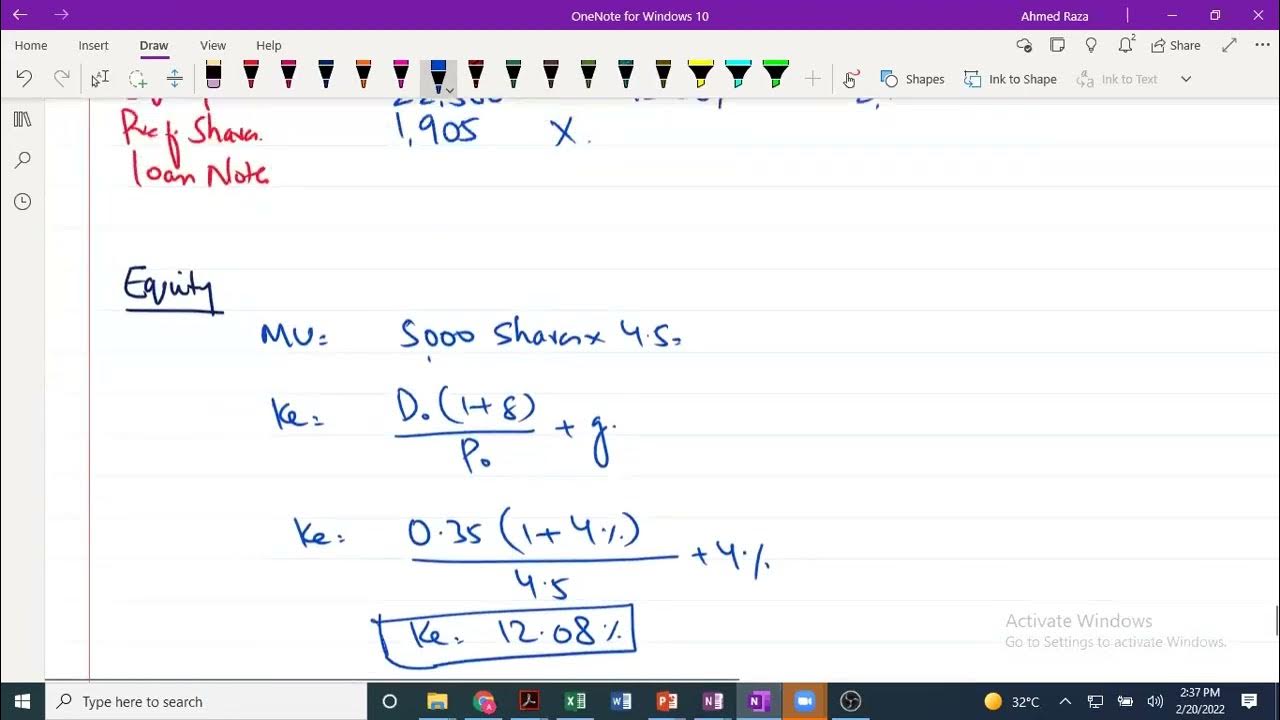 OneNote for Windows 10 Ahmed Raza
Home Insert Draw View Help Share
Shapes Ink to Shape Ink to Text
Pref. Shares 1,905 X.
loan Note
Equity
MV= 5000 Shares x 4.5=
Ke= D₀(1+g)
P₀
+ g.
Ke= 0.35 (1+4%)
4.5
+4%
Ke= 12.08%
Activate Windows
Go to Settings to activate Windows.
Type here to search 32°C 2:37 PM
2/20/2022